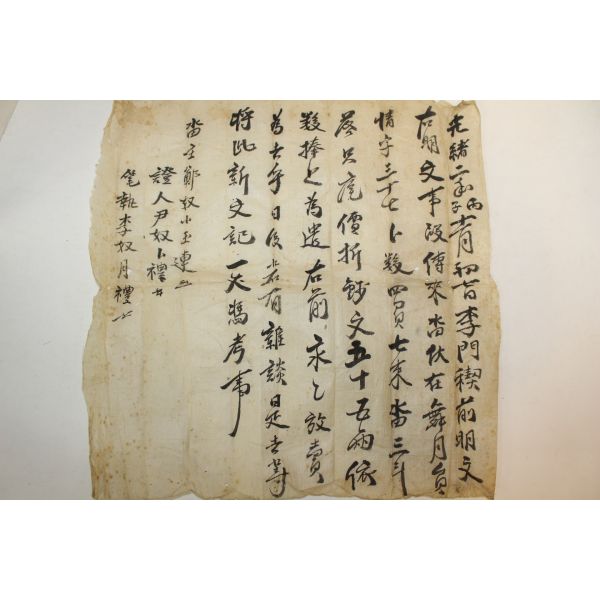 光緖二年丙子十一月初二日李門稧前明文
右明文事段傳來畓伏在舞月員
情字三十七卜數四負七束畓三斗
落只庖價折錢文五十五兩依
數捧上爲遣右前永永放賣
爲去乎日後若有雜談是去等
將此新文記一天憑考事
畓主鄭奴小玉連
證人尹奴卜禮
筆執李奴月禮